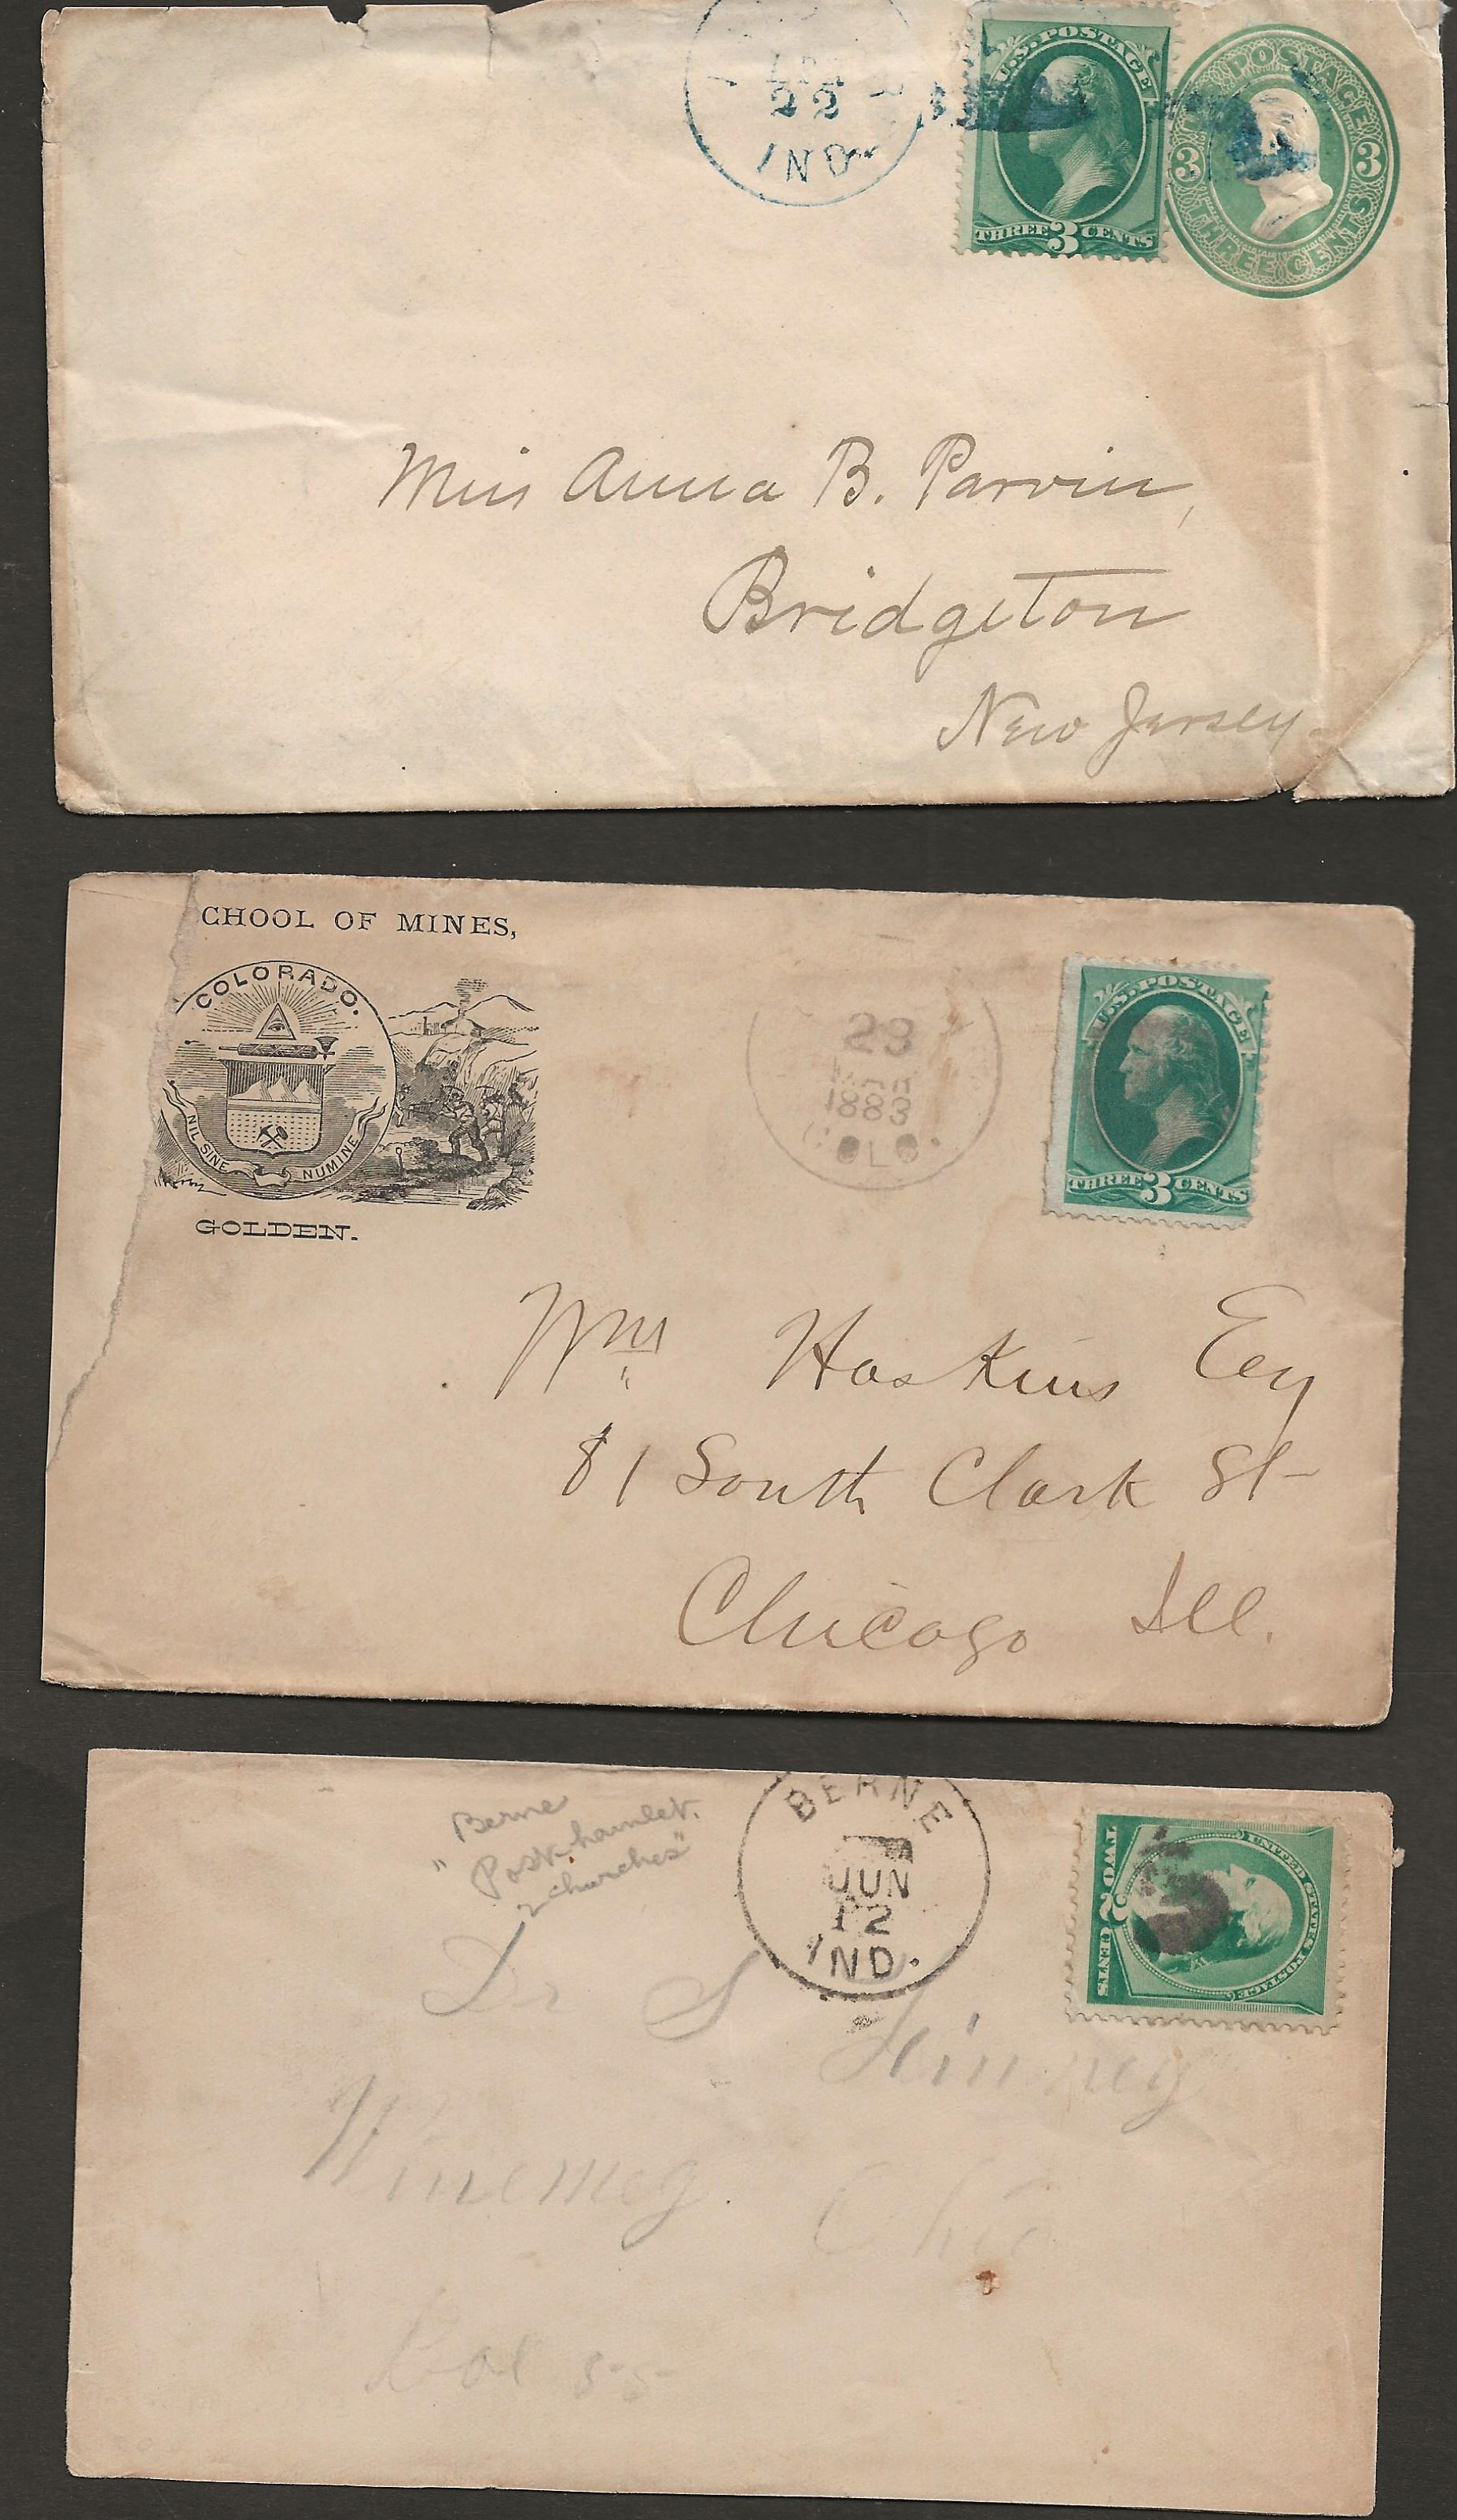 22
IND.
U.S. POSTAGE
THREE 3 CENTS
U.S. POSTAGE
3 3
THREE CENTS
Miss Anna B. Parvin,
Bridgeton
New Jersey.
CHOOL OF MINES,
COLORADO.
NIL SINE NUMINE
GOLDEN.
23
MAR
1883
COLO.
U.S. POSTAGE
THREE 3 CENTS
Wm Hoskins Esq
81 South Clark St
Chicago Ill.
Berne
"Post-hamlet.
2 churches"
BERNE
JUN
12
IND.
UNITED STATES POSTAGE
TWO 2 CENTS
Dr S
Winameg Ohio